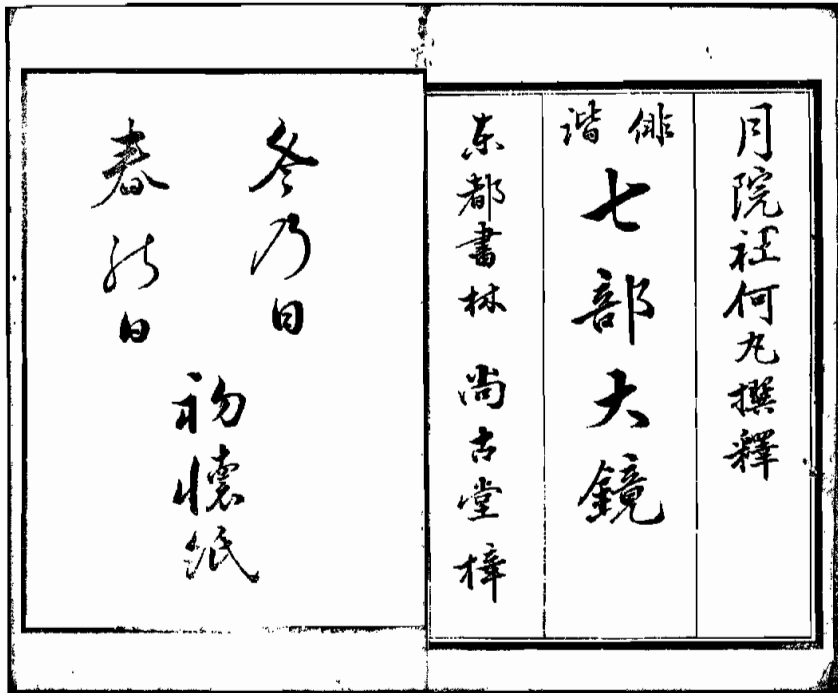 月院社何丸撰釋
俳諧
七部大鏡
東都書林 尚古堂梓
冬乃日
春能日
初懐紙